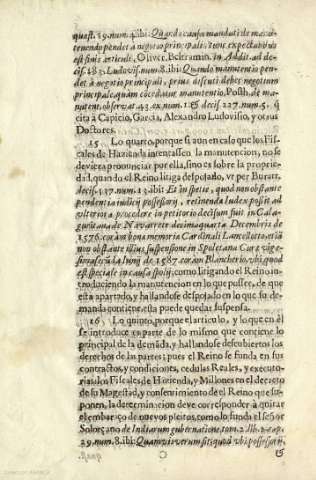 quæst. 19. num. 4. ibi: Quando causa mandati de manu-
tenendo pendet a negotio principali, tunc expectandus
est finis articuli, Oliver. Beltramin. in Addit. ad de-
cis. 183. Ludovis. num. 8. ibi: Quando manutentio pen-
det à negotio principali, prius discuti debet negotium
principale, quàm concedatur manutentio, Posth. de ma-
nutent. observat. 43. ex num. 1. & decis. 227. num. 5. q̃
cita à Capicio, Garcia, Alexandro Ludovisio, y otros
Doctores.
15 Lo quarto, porque si aun en caso que los Fis-
cales de Hazienda intentassen la manutencion, no se
deviera pronunciar por ella, sino es sobre la proprie-
dad, quando el Reino litiga despojado, vt per Buratt.
decis. 327. num. 13. ibi: Et in specie, quod non obstante
pendentia iudicij possessorij, retinenda Iudex possit ad
vlteriora procedere in petitorio decisum fuit in Cala-
guritana de Navarrete decimaquarta Decembris de
1576. coram bona memoria Cardinali Lancelloto, etiã
non obstante illius suspensione in Spoletana
de 1587. coram Blanchetto, vbi, quod
est speciale in causa spolij, como litigando el Reino in-
troduciendo la manutencion en lo que possee, de que
esta apartado, y hallandose despojado en lo que su de-
manda contiene, esta puede quedar suspensa.
16 Lo quinto, porque el articulo, y lo que en él
se introduce es parte de lo mismo que contiene lo
principal de la demãda, y hallandose descubiertos los
derechos de las partes; pues el Reino se funda en sus
contractos, y condiciones, cedulas Reales, y executo-
rias: los Fiscales de Hazienda, y Millones en el decreto
de su Magestad, y consentimiento del Reino que su-
ponen, la determinacion deve corresponder à quitar
el embaraço de nuevos pleitos, como lo funda el señor
Solorçano de Indiarum gubernatione, tom. 2. lib. 2. cap.
29. num. 8. ibi: Quamvis verum sit, quod vbi possessorij,
C